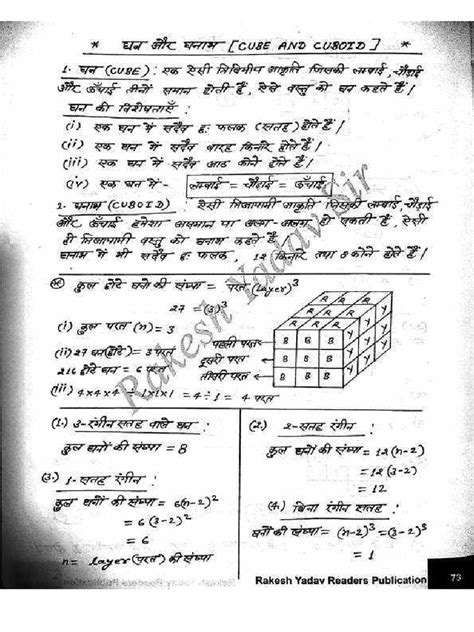 * घन और घनाभ [CUBE AND CUBOID] *
1. घन (CUBE) : एक ऐसी त्रिविमीय आकृति जिसकी लम्बाई, चौड़ाई
और ऊँचाई तीनों समान होती हैं, ऐसे वस्तु को घन कहते हैं /
घन की विशेषताएँ :
(i) एक घन में सदैव छः फलक (सतह) होते हैं /
(ii) एक घन में सदैव बारह किनारे होते हैं /
(iii) एक घन में सदैव आठ कोने होते हैं /
(iv) एक घन में - लम्बाई = चौड़ाई = ऊँचाई
2. घनाभ (CUBOID) : ऐसी त्रिआयामी आकृति जिसकी लम्बाई, चौड़ाई
और ऊँचाई हमेशा असमान या अलग-अलग हो सकती हैं, ऐसी
ही त्रिआयामी वस्तु को घनाभ कहते हैं
घनाभ में भी सदैव छः फलक, 12 किनारे तथा 8 कोने होते हैं /
कुल छोटे घनो की संख्या = परत (layer)³
27 = (3)³
(i) कुल परत (n) = 3
(ii) 27 घन (छोटे) = 3 परत
216 छोटे घन = 6 परत
(iii) 4×4×4 ÷ 1×1×1 = 4÷1 = 4 परत
पहली परत
दूसरी परत
तीसरी परत
R R R
R R R
R R R
B B B Y Y Y
B B B Y Y Y
B B B Y Y Y
(1.) 3-रंगीन सतह वाले घन :
कुल घनों की संख्या = 8
(2.) 2-सतह रंगीन :
कुल घनों की संख्या = 12(n-2)
= 12(3-2)
= 12
(3.) 1-सतह रंगीन :
कुल घनों की संख्या = 6(n-2)²
= 6(3-2)²
= 6
n = layer (परत) की संख्या
(4.) बिना रंगीन सतह
घनों की संख्या = (n-2)³ = (3-2)³
= 1
Rakesh Yadav Sir
Rakesh Yadav Readers Publication 73